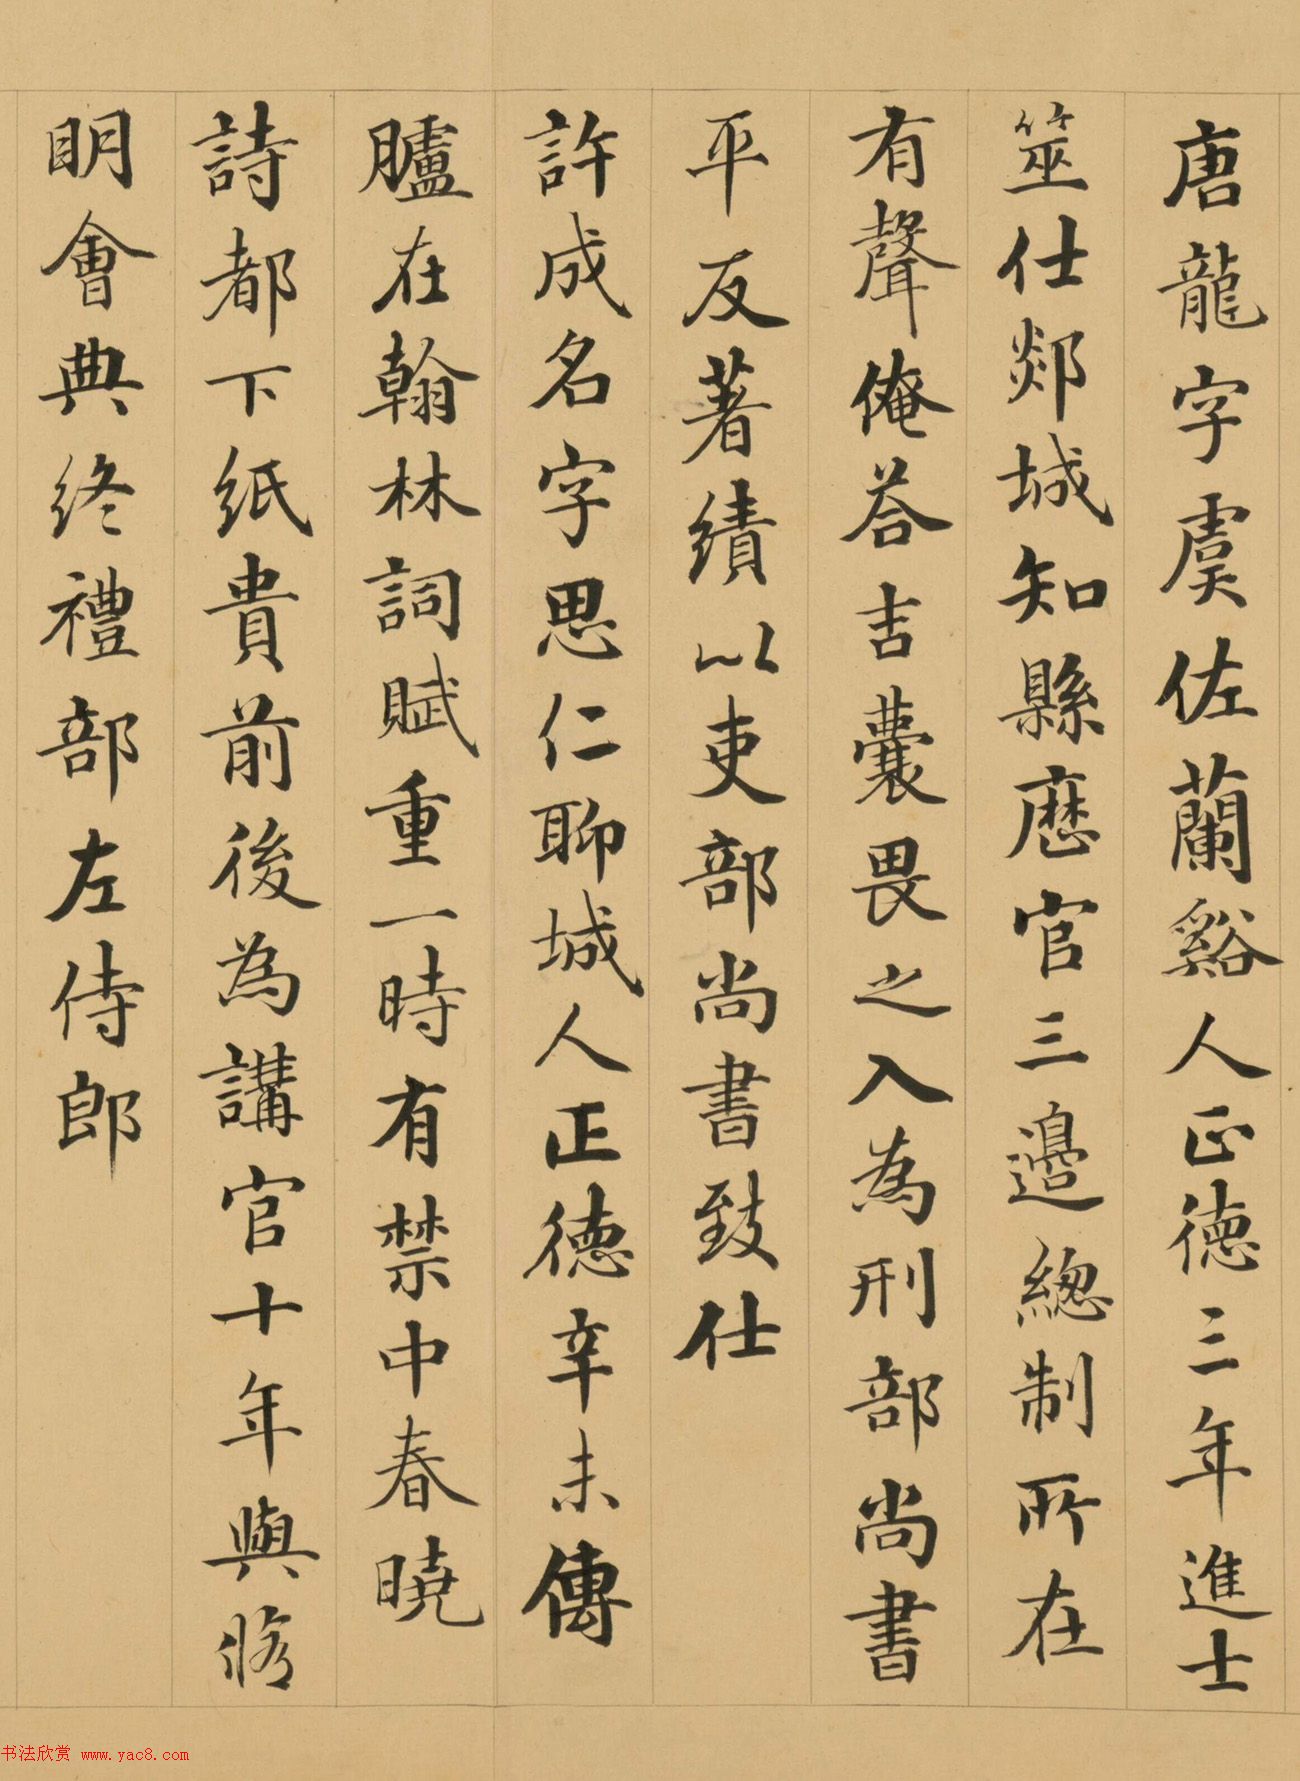 唐龍字虞佐蘭谿人正德三年進士
筮仕郯城知縣歷官三邊總制所在
有聲俺荅吉囊畏之入為刑部尚書
平反著績以吏部尚書致仕
許成名字思仁聊城人正德辛未傳
臚在翰林詞賦重一時有禁中春曉
詩都下紙貴前後為講官十年與脩
明會典終禮部左侍郎
书法欣赏 www.yac8.com